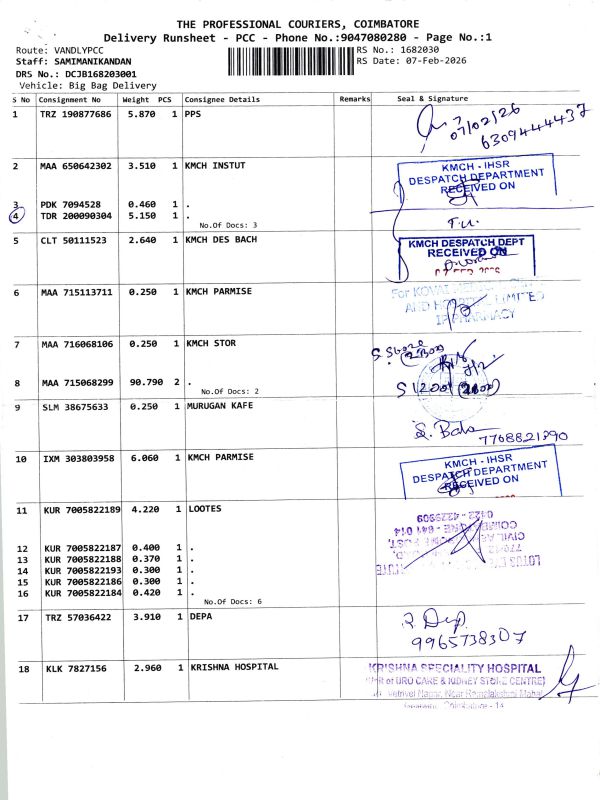 THE PROFESSIONAL COURIERS, COIMBATORE
Delivery Runsheet - PCC - Phone No.:9047080280 - Page No.:1
Route: VANDLYPCC
RS No.: 1682030
Staff: SAMIMANIKANDAN
RS Date: 07-Feb-2026
DRS No.: DCJB168203001
Vehicle: Big Bag Delivery
S No Consignment No Weight PCS Consignee Details Remarks Seal & Signature
1 TRZ 190877686 5.870 1 PPS
07/02/26
6309444437
2 MAA 650642302 3.510 1 KMCH INSTUT
KMCH - IHSR
DESPATCH DEPARTMENT
RECEIVED ON
3 PDK 7094528 0.460 1 .
4 TDR 200090304 5.150 1 .
No.Of Docs: 3
5 CLT 50111523 2.640 1 KMCH DES BACH
KMCH DESPATCH DEPT
RECEIVED ON
6 MAA 715113711 0.250 1 KMCH PARMISE
For KOVAI
LIMITED
IP PHARMACY
7 MAA 716068106 0.250 1 KMCH STOR
8 MAA 715068299 90.790 2 .
No.Of Docs: 2
9 SLM 38675633 0.250 1 MURUGAN KAFE
S. Bala
7768821390
10 IXM 303803958 6.060 1 KMCH PARMISE
KMCH - IHSR
DESPATCH DEPARTMENT
RECEIVED ON
11 KUR 7005822189 4.220 1 LOOTES
12 KUR 7005822187 0.400 1 .
13 KUR 7005822188 0.370 1 .
14 KUR 7005822193 0.300 1 .
15 KUR 7005822186 0.300 1 .
16 KUR 7005822184 0.420 1 .
No.Of Docs: 6
17 TRZ 57036422 3.910 1 DEPA
9965738307
18 KLK 7827156 2.960 1 KRISHNA HOSPITAL
KRISHNA SPECIALITY HOSPITAL
URO CARE & KIDNEY STONE CENTRE